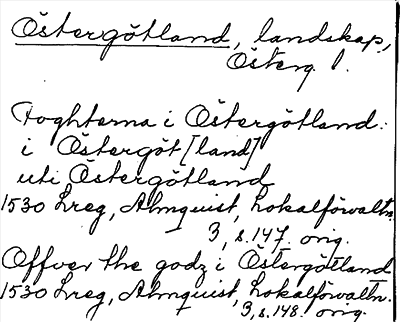 Östergötland, landskap,
Österg. l.
Foghterna i Östergötland:
i Östergöt[land]
uti Östergötland
1530 Lreg, Almquist, Lokalförvaltn.
3, s. 147. orig.
Offver the godz i Östergötland
1530 Lreg, Almquist, Lokalförvaltn.
3, s. 148. orig.